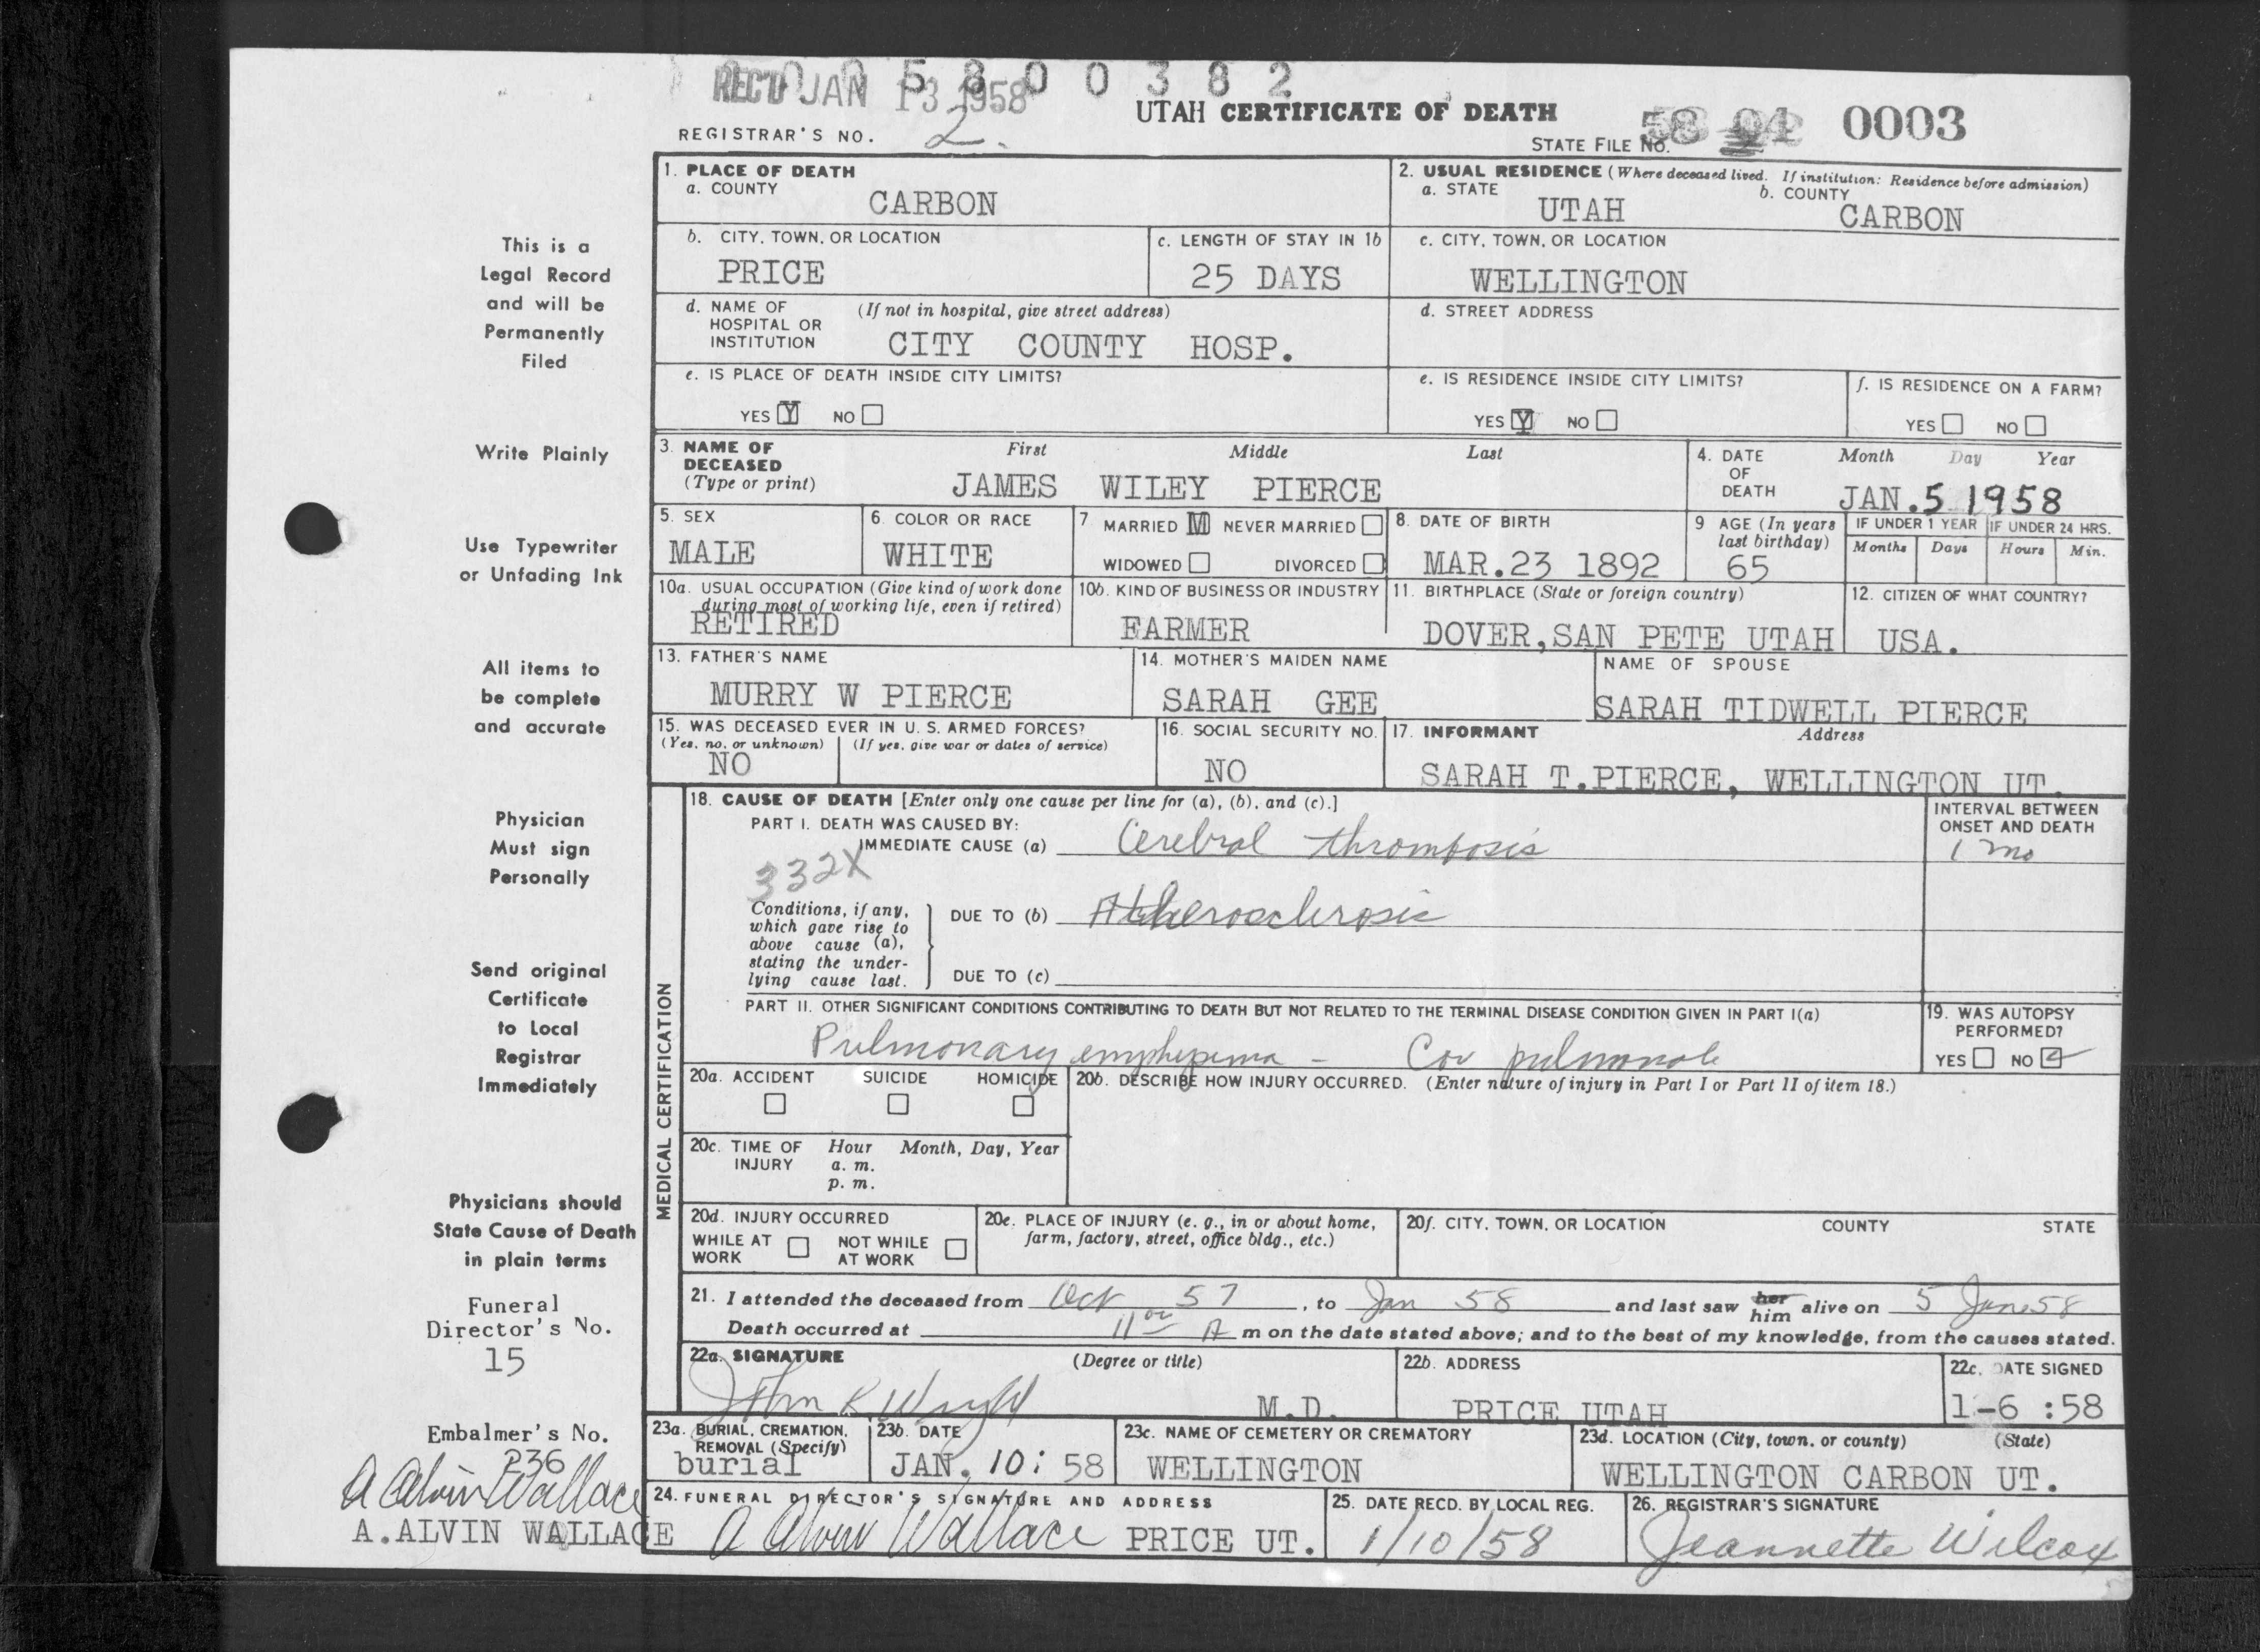 REC'D JAN 13 1958
5 8 0 0 3 8 2
UTAH CERTIFICATE OF DEATH
REGISTRAR'S NO. 2.
STATE FILE No. 58 01 0003
1. PLACE OF DEATH
a. COUNTY
CARBON
2. USUAL RESIDENCE (Where deceased lived. If institution: Residence before admission)
a. STATE
UTAH
b. COUNTY
CARBON
b. CITY, TOWN, OR LOCATION
PRICE
c. LENGTH OF STAY IN 1b
25 DAYS
c. CITY, TOWN, OR LOCATION
WELLINGTON
d. NAME OF HOSPITAL OR INSTITUTION (If not in hospital, give street address)
CITY COUNTY HOSP.
d. STREET ADDRESS
e. IS PLACE OF DEATH INSIDE CITY LIMITS?
YES Y NO
e. IS RESIDENCE INSIDE CITY LIMITS?
YES Y NO
f. IS RESIDENCE ON A FARM?
YES NO
3. NAME OF DECEASED (Type or print)
First Middle Last
JAMES WILEY PIERCE
4. DATE OF DEATH
Month Day Year
JAN. 5 1958
5. SEX
MALE
6. COLOR OR RACE
WHITE
7 MARRIED M NEVER MARRIED
WIDOWED DIVORCED
8. DATE OF BIRTH
MAR.23 1892
9 AGE (In years last birthday)
65
IF UNDER 1 YEAR
Months Days
IF UNDER 24 HRS.
Hours Min.
10a. USUAL OCCUPATION (Give kind of work done during most of working life, even if retired)
RETIRED
10b. KIND OF BUSINESS OR INDUSTRY
FARMER
11. BIRTHPLACE (State or foreign country)
DOVER,SAN PETE UTAH
12. CITIZEN OF WHAT COUNTRY?
USA.
13. FATHER'S NAME
MURRY W PIERCE
14. MOTHER'S MAIDEN NAME
SARAH GEE
NAME OF SPOUSE
SARAH TIDWELL PIERCE
15. WAS DECEASED EVER IN U. S. ARMED FORCES?
(Yes, no, or unknown) (If yes, give war or dates of service)
NO
16. SOCIAL SECURITY NO.
NO
17. INFORMANT Address
SARAH T.PIERCE, WELLINGTON UT.
MEDICAL CERTIFICATION
18. CAUSE OF DEATH [Enter only one cause per line for (a), (b), and (c).]
INTERVAL BETWEEN ONSET AND DEATH
PART I. DEATH WAS CAUSED BY:
IMMEDIATE CAUSE (a) Cerebral thrombosis 1 mo
332X
Conditions, if any, which gave rise to above cause (a), stating the underlying cause last.
DUE TO (b) Atherosclerosis
DUE TO (c)
PART II. OTHER SIGNIFICANT CONDITIONS CONTRIBUTING TO DEATH BUT NOT RELATED TO THE TERMINAL DISEASE CONDITION GIVEN IN PART I(a)
Pulmonary emphysema - Cor pulmonale
19. WAS AUTOPSY PERFORMED?
YES NO
20a. ACCIDENT SUICIDE HOMICIDE
20b. DESCRIBE HOW INJURY OCCURRED. (Enter nature of injury in Part I or Part II of item 18.)
20c. TIME OF INJURY
Hour Month, Day, Year
a. m.
p. m.
20d. INJURY OCCURRED
WHILE AT WORK
NOT WHILE AT WORK
20e. PLACE OF INJURY (e. g., in or about home, farm, factory, street, office bldg., etc.)
20f. CITY, TOWN, OR LOCATION COUNTY STATE
21. I attended the deceased from Oct 57, to Jan 58 and last saw her him alive on 5 Jan 58
Death occurred at 11 00 A m on the date stated above; and to the best of my knowledge, from the causes stated.
22a. SIGNATURE (Degree or title)
John R Wright M.D.
22b. ADDRESS
PRICE UTAH
22c. DATE SIGNED
1-6 :58
23a. BURIAL, CREMATION, REMOVAL (Specify)
burial
23b. DATE
JAN. 10: 58
23c. NAME OF CEMETERY OR CREMATORY
WELLINGTON
23d. LOCATION (City, town, or county) (State)
WELLINGTON CARBON UT.
24. FUNERAL DIRECTOR'S SIGNATURE AND ADDRESS
A Alvin Wallace PRICE UT.
25. DATE RECD. BY LOCAL REG.
1/10/58
26. REGISTRAR'S SIGNATURE
Jeannette Wilcox
This is a
Legal Record
and will be
Permanently
Filed
Write Plainly
Use Typewriter
or Unfading Ink
All items to
be complete
and accurate
Physician
Must sign
Personally
Send original
Certificate
to Local
Registrar
Immediately
Physicians should
State Cause of Death
in plain terms
Funeral
Director's No.
15
Embalmer's No.
236
A Alvin Wallace
A.ALVIN WALLACE